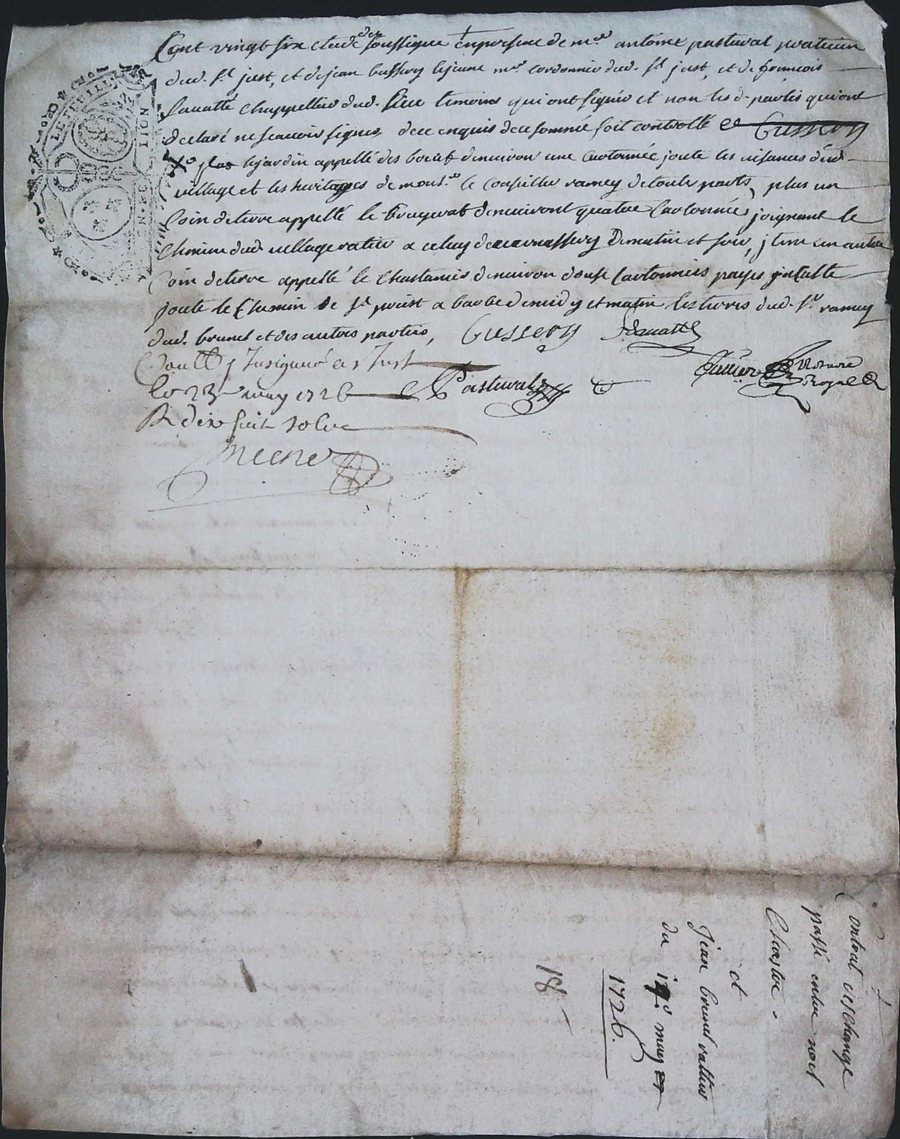 LE FEUILLE
LION
Cent vingt six et led. soussigne en presence de me antoine pastural praticien
dud. st just, et de jean bussery le jeune me cordonnier dud. st just, et de francois
sauatte chappellier dud. lieu temoins qui ont signés et non les d. parties qui ont
declaré ne scauoir signer de ce enquis de ce sommé soit controllé Gussery
le jardin appellé des boeuf denuiron une cartonnée joute les aisances dud.
village et les heritages de monsr le conseillier ramey de toute parts, plus un
coin de terre appellé le brugerat denuiront quatre cartonnée, joignant le
chemin dud. village ratier a celuy de matin et soir, j tem un autre
coin de terre appellé le chastanier denuiron douse cartonnées
joute le chemin de st priest a barbe de midy et matin les terres dud. sr ramey
dud. brunel et des autres parties, Gussery Sauatte
Conttlé j Insigneé a st Just Notaire
le 23e may 1726 Pastural Royal
R dix huit sols
Contrat deschange
passé entre noel
Chastre.
et
jean brunel rattier
du 19e may
1726.
18